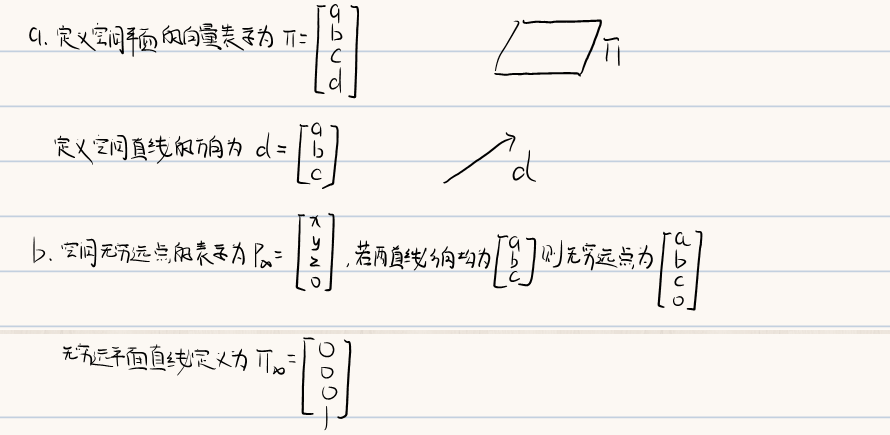 a. 定义空间平面的向量表示为 π = [a b c d] π
定义空间直线的方向为 d = [a b c] d
b. 空间无穷远点的表示为 P∞ = [x y z 0], 若两直线方向均为 [a b c] 则无穷远点为 [a b c 0]
无穷远平面直线定义为 π∞ = [0 0 0 1]